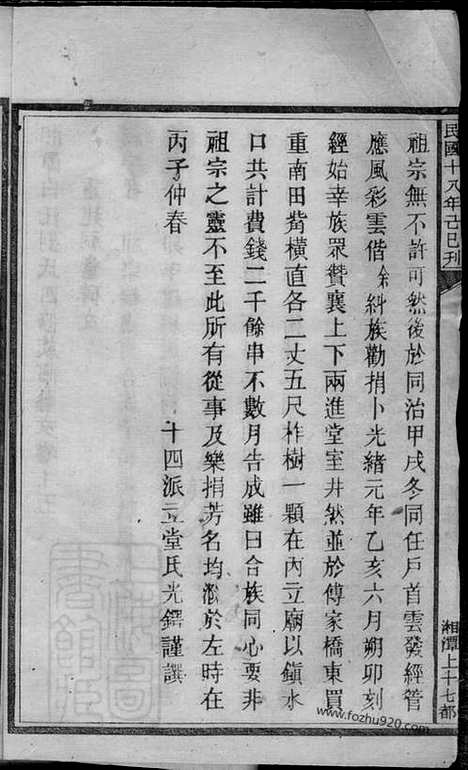 民國十八年己巳刋
湘潭上十七都
祖宗無不許可然後於同治甲戌冬同任戶首雲發經管
應風彩雲偕余紏族勸捐卜光緒元年乙亥六月朔卯刻
經始幸族眾贊襄上下兩進堂室井然並於傅家橋東買
重南田觜橫直各二丈五尺柞樹一顆在內立廟以鎮水
口共計費錢二千餘串不數月告成雖曰合族同心要非
祖宗之靈不至此所有從事及樂捐芳名均泐於左時在
丙子仲春
十四派立堂氏光鐸謹譔
www.fozhu920.com